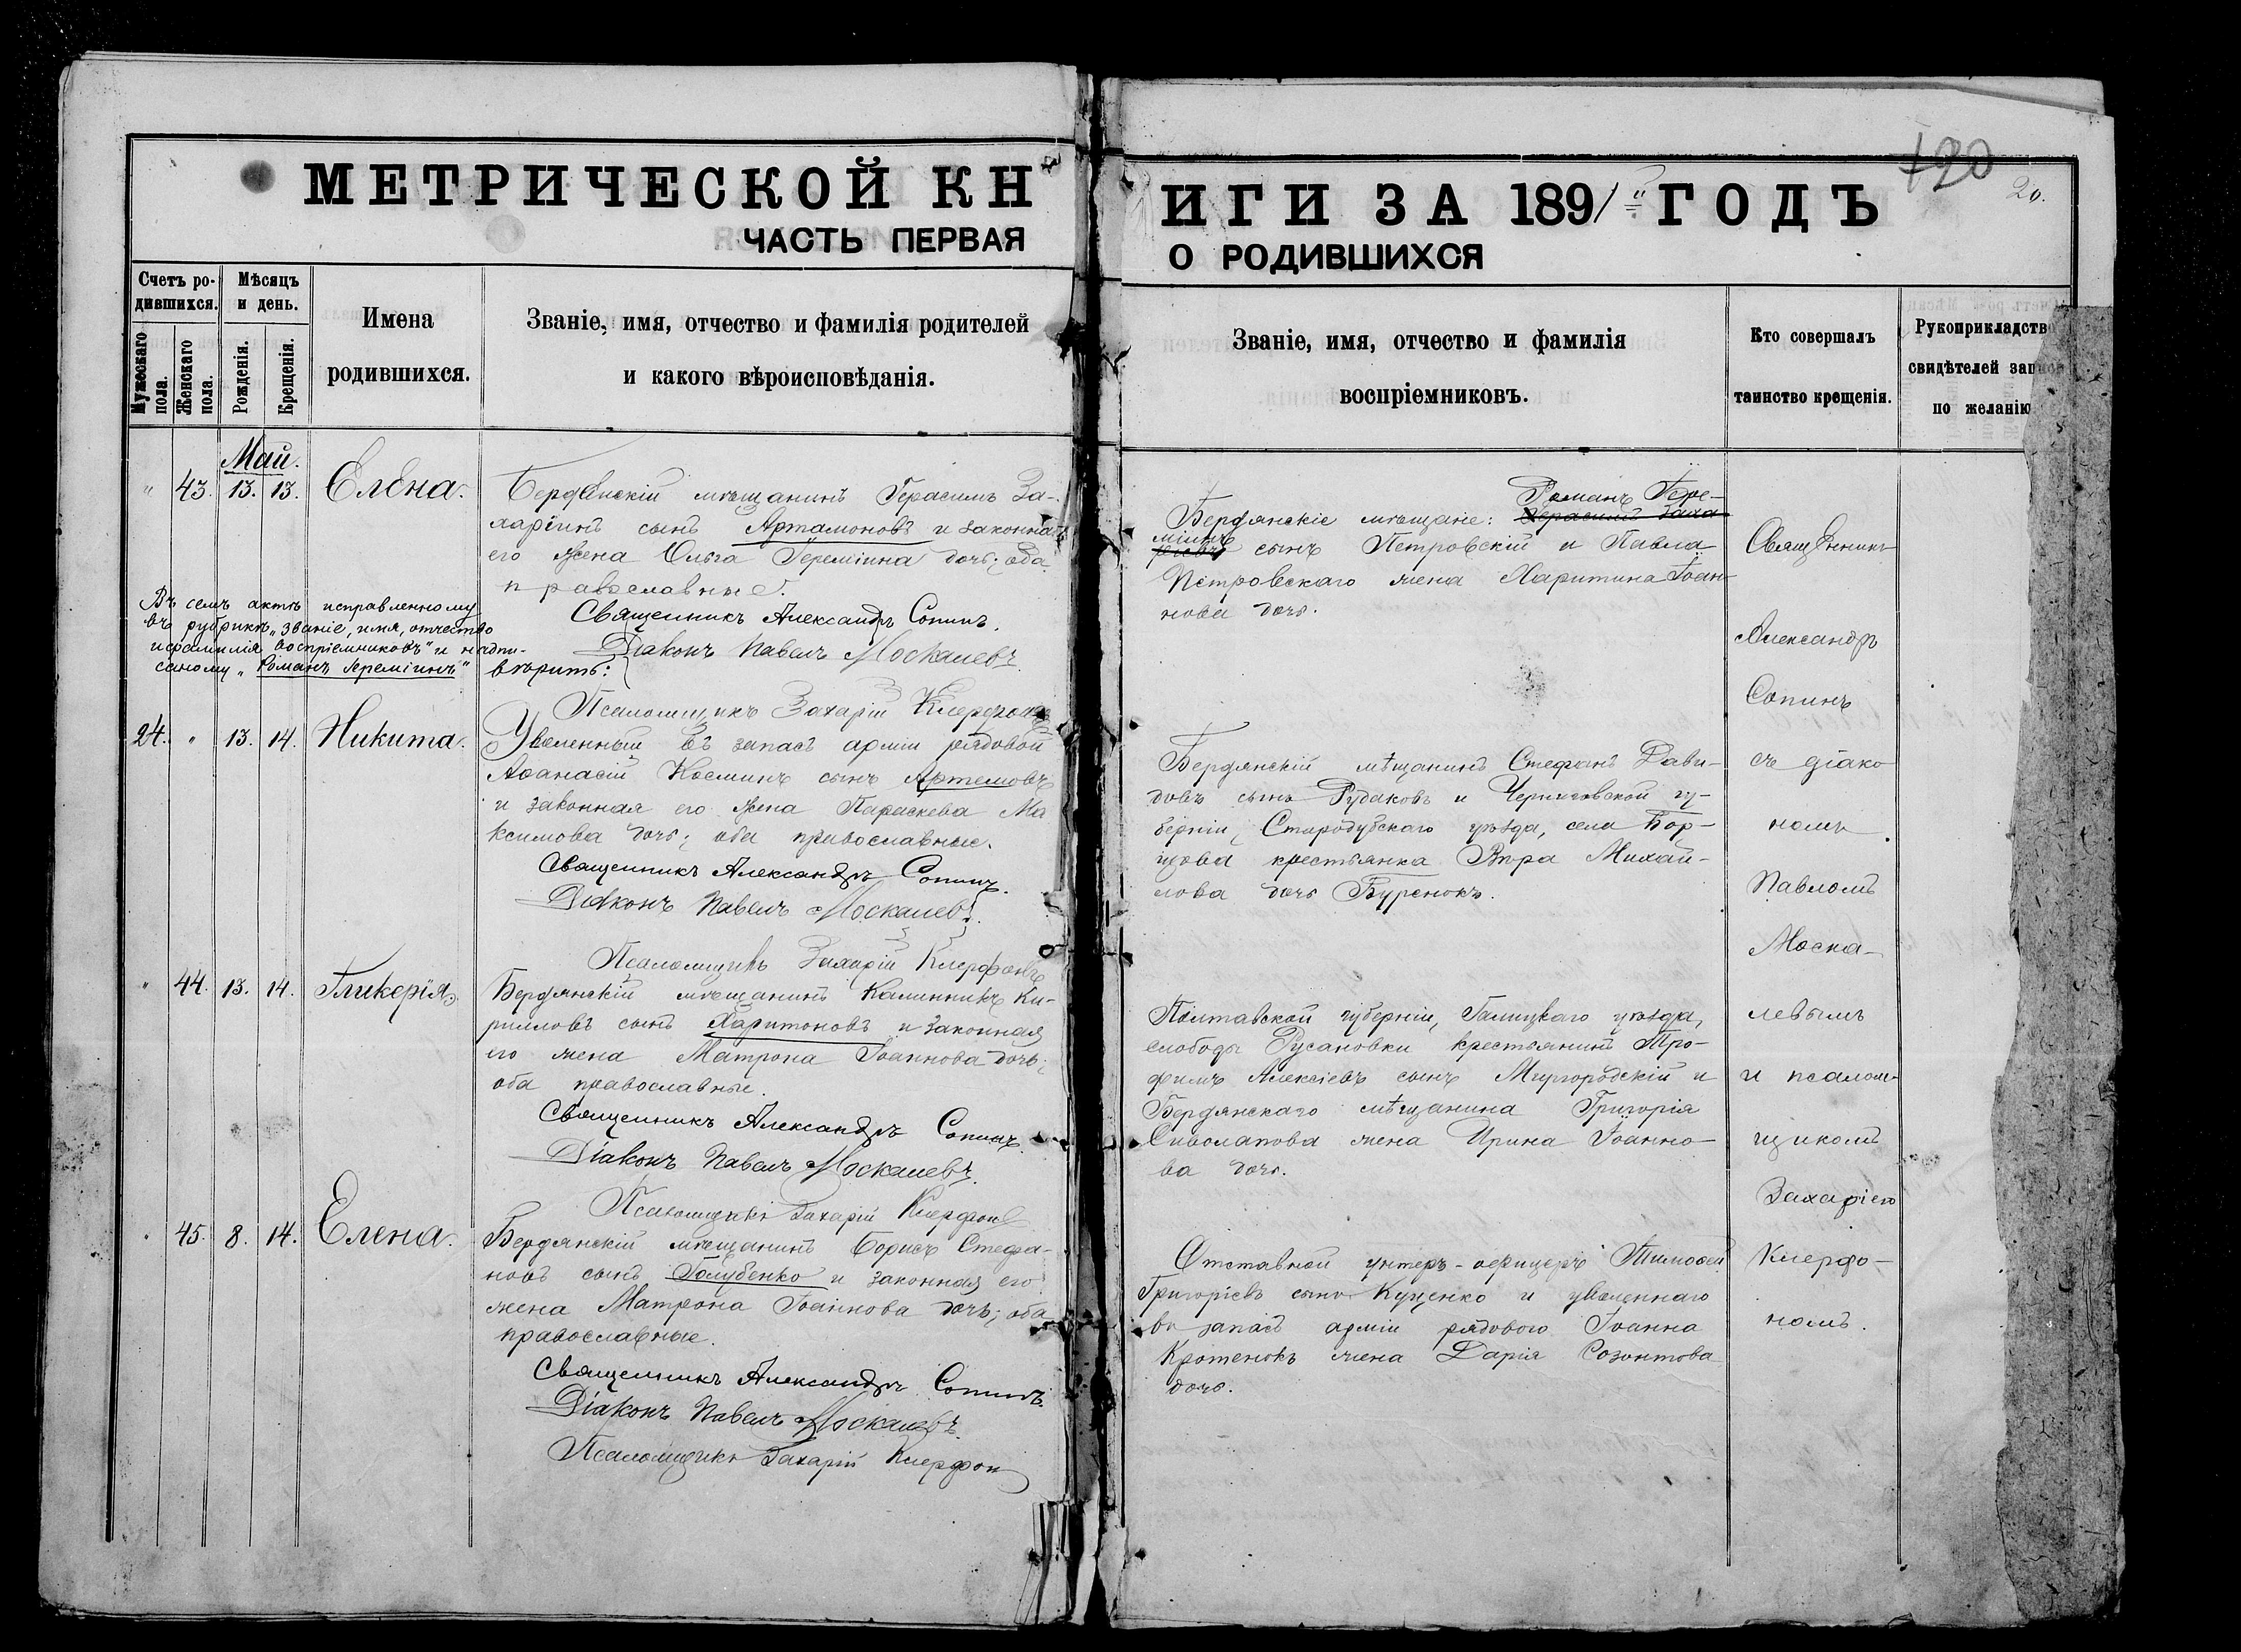 МЕТРИЧЕСКОЙ КН
ЧАСТЬ ПЕРВАЯ
Счетъ ро-
дившихся.
Мужескаго пола.
Женскаго пола.
Мѣсяцъ
и день.
Рожденія.
Крещенія.
Имена
родившихся.
Званіе, имя, отчество и фамилія родителей
и какого вѣроисповѣданія.
Май.
" 43. 13. 13. Елена.
Бердянскій мѣщанинъ Герасимъ За-
харіинъ сынъ Артамоновъ и законная
его жена Ольга Іереміина дочь; оба
православные.
Священникъ Александръ Сопинъ.
Діаконъ Павелъ Москалевъ.
Въ семъ актѣ исправленному
въ рубрикѣ „званіе, имя, отчество
и фамилія воспріемниковъ" и надпи-
саному „Романъ Іереміинъ" вѣрить:
Псаломщикъ Захарій Клерфонъ
24. " 13. 14. Никита.
Уволенный въ запасъ арміи рядовой
Аѳанасій Косминъ сынъ Артемовъ
и законная его жена Параскева Ма
ксимова дочь; оба православные.
Священникъ Александръ Сопинъ.
Діаконъ Павелъ Москалевъ.
Псаломщикъ Захарій Клерфонъ
" 44. 13. 14. Гликерія.
Бердянскій мѣщанинъ Калинникъ Ки-
рилловъ сынъ Харитоновъ и законная
его жена Матрона Іоаннова дочь;
оба православные.
Священникъ Александръ Сопинъ.
Діаконъ Павелъ Москалевъ.
Псаломщикъ Захарій Клерфонъ
" 45. 8. 14. Елена.
Бердянскій мѣщанинъ Борисъ Стефа-
новъ сынъ Голубенко и законная его
жена Матрона Іоаннова дочь; оба
православные.
Священникъ Александръ Сопинъ.
Діаконъ Павелъ Москалевъ.
Псаломщикъ Захарій Клерфон
120
20.
ИГИ ЗА 1891 ГОДЪ
О РОДИВШИХСЯ
Званіе, имя, отчество и фамилія
воспріемниковъ.
Кто совершалъ
таинство крещенія.
Рукоприкладство
свидѣтелей записи
по желанію
Романъ Іере-
Бердянскіе мѣщане: Герасимъ Заха
міинъ
ріевъ сынъ Петровскій и Павла
Петровскаго жена Харитина Іоан-
нова дочь.
Бердянскій мѣщанинъ Стефанъ Дави-
довъ сынъ Рудаковъ и Черниговской гу-
берніи, Стародубскаго уѣзда, села Бор-
щова крестьянка Вѣра Михай-
лова дочь Буренокъ.
Полтавской губерніи, Гадицкаго уѣзда,
слободы Русановки крестьянинъ Тро-
фимъ Алексіевъ сынъ Миргородскій и
Бердянскаго мѣщанина Григорія
Сиволапова жена Ирина Іоанно-
ва дочь.
Отставной унтеръ-офицеръ Тимоѳей
Григоріевъ сынъ Куценко и уволеннаго
въ запасъ арміи рядового Іоанна
Кротенокъ жена Дарія Созонтова
дочь.
Священникъ
Александръ
Сопинъ
съ діако
номъ
Павломъ
Моска-
левымъ
и псалом-
щикомъ
Захаріею
Клерфо-
номъ.